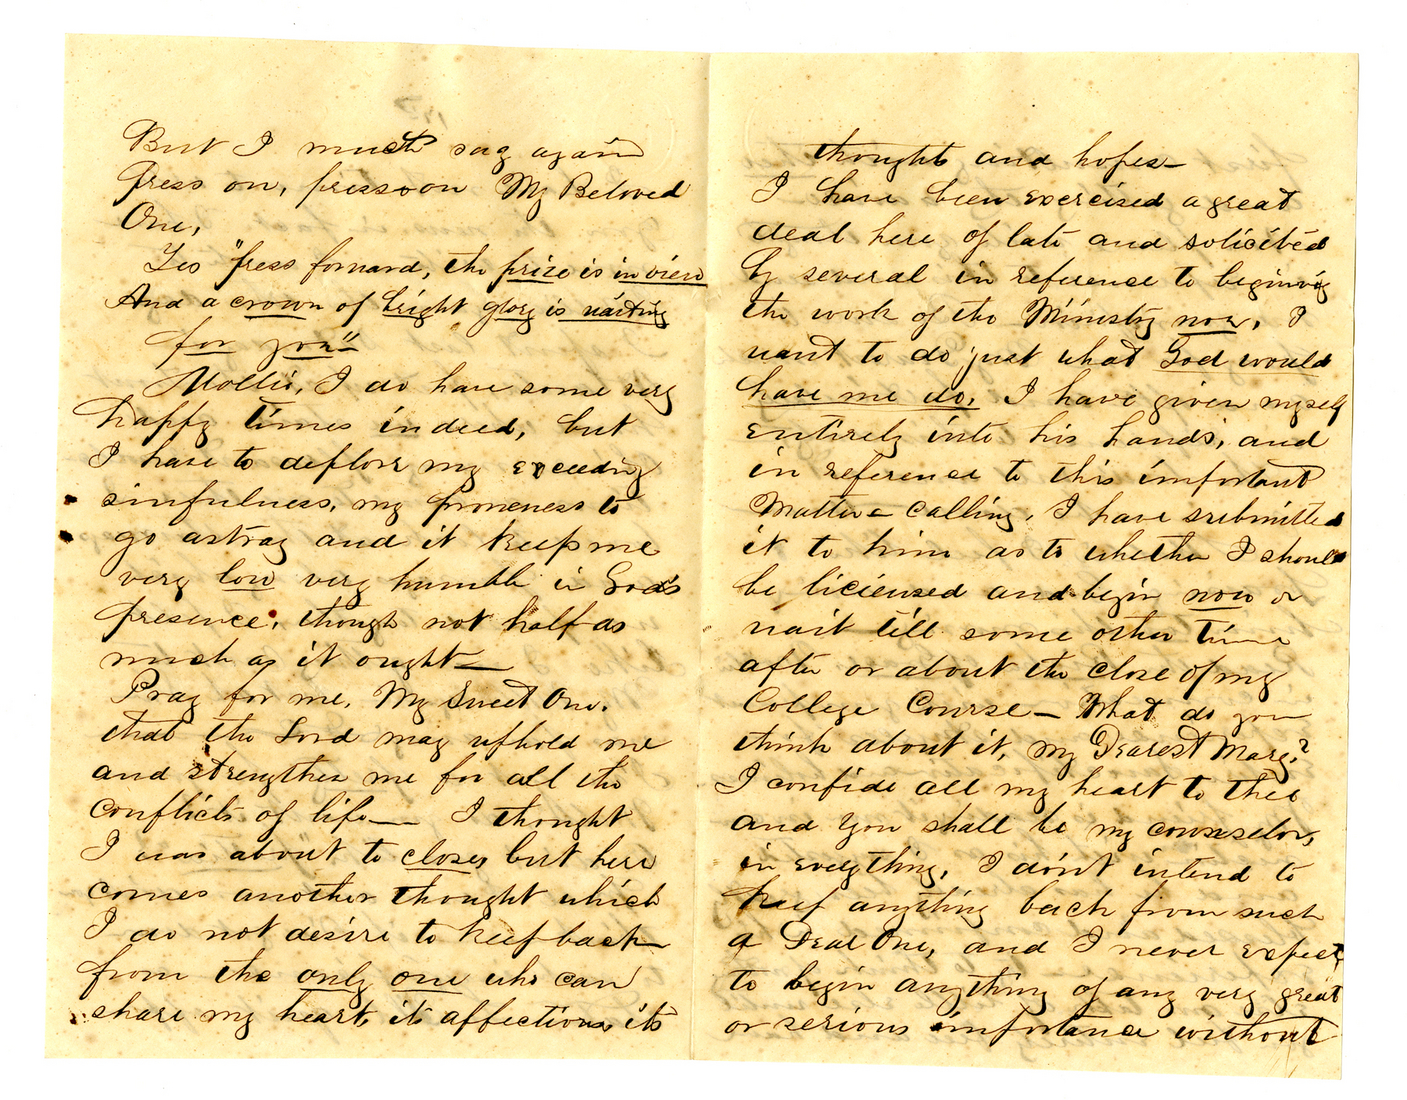 But I must say again
Press on, press on My Beloved
One,
Yes "press forward, the prize is in view
And a crown of bright glory is waiting
for you"
Mollie, I do have some very
happy times indeed, but
I have to deplore my exceeding
sinfulness, my proneness to
go astray and it keeps me
very low very humble in God's
presence, though not half as
much as it ought—
Pray for me, My Sweet One.
that the Lord may uphold me
and strengthen me for all the
conflicts of life— I thought
I was about to close, but here
comes another thought which
I do not desire to keep back
from the only one who can
share my heart, its affections, its
thoughts and hopes—
I have been exercised a great
deal here of late and solicited
by several in reference to begining
the work of the Ministry now. I
want to do just what God would
have me do. I have given myself
entirely into his hands, and
in reference to this important
Matter - calling, I have submitted
it to him as to whether I should
be liciensed and begin now or
wait till some other time
after or about the close of my
College Course— What do you
think about it, my Dearest Mary?
I confide all my heart to thee
and you shall be my counselor,
in everything, I don't intend to
keep anything back from such
a Dear One, and I never expect
to begin anything of any very great
or serious importance without